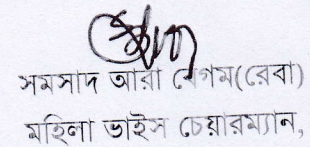 সমসাদ আরা বেগম(রেবা)
মহিলা ভাইস চেয়ারম্যান,